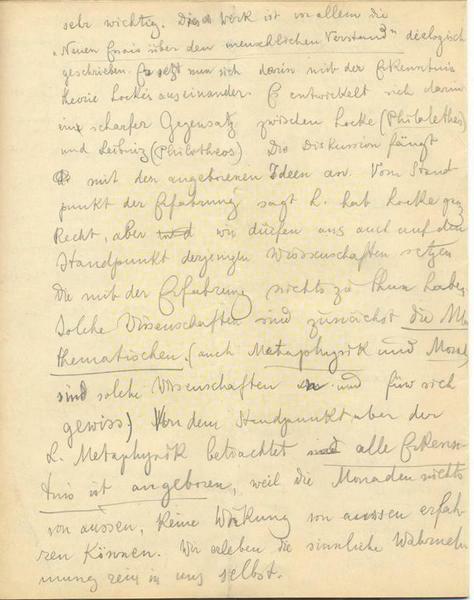 sehr wichtig. Dieses Werk ist vor allem die
„Neuen Essais über den menschlichen Verstand" dialogisch
geschrieben. Er setzt nun sich darin mit der Erkenntnis
theorie Lockes auseinander. Es entwickelt sich darin
ein scharfer Gegensatz zwischen Locke (Philolethes)
und Leibniz (Philotheos) Die Diskussion fängt
mit den angeborenen Ideen an. Vom Stand
punkt der Erfahrung sagt L. hab Locke ganz
Recht, aber wir dürfen uns auch auf den
Standpunkt derjenigen Wissenschaften setzen
Die mit der Erfahrung nichts zu thun haben
Solche Wissenschaften sind zunächst die Ma
thematischen. (auch Metaphysik und Moral
sind solche Wissenschaften an und für sich
gewiss) Von dem Standpunkt aber der
L. Metaphysik betrachtet sind alle Erkennt-
tnis ist angeboren, weil die Monaden nichts
von aussen, keine Wirkung von aussen erfah-
ren können. Wir erleben die sinnliche Wahrneh
mung rein in uns selbst.